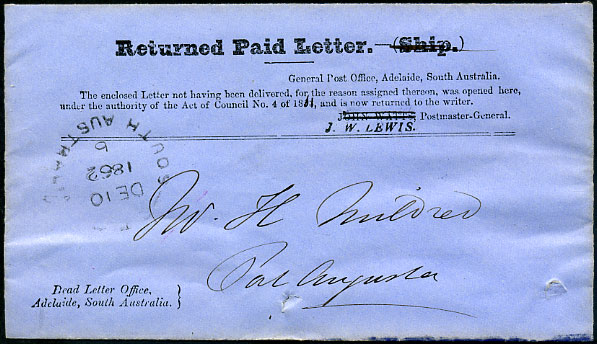 Returned Paid Letter.—(Ship.)
General Post Office, Adelaide, South Australia.
The enclosed Letter not having been delivered, for the reason assigned thereon, was opened here,
under the authority of the Act of Council No. 4 of and is now returned to the writer.
JOHN WATTS, Postmaster-General.
J. W. LEWIS.
SOUTH AUSTRALIA
6
DE 10
1862
Mr H Mildred
Port Augusta
Dead Letter Office,
Adelaide, South Australia.